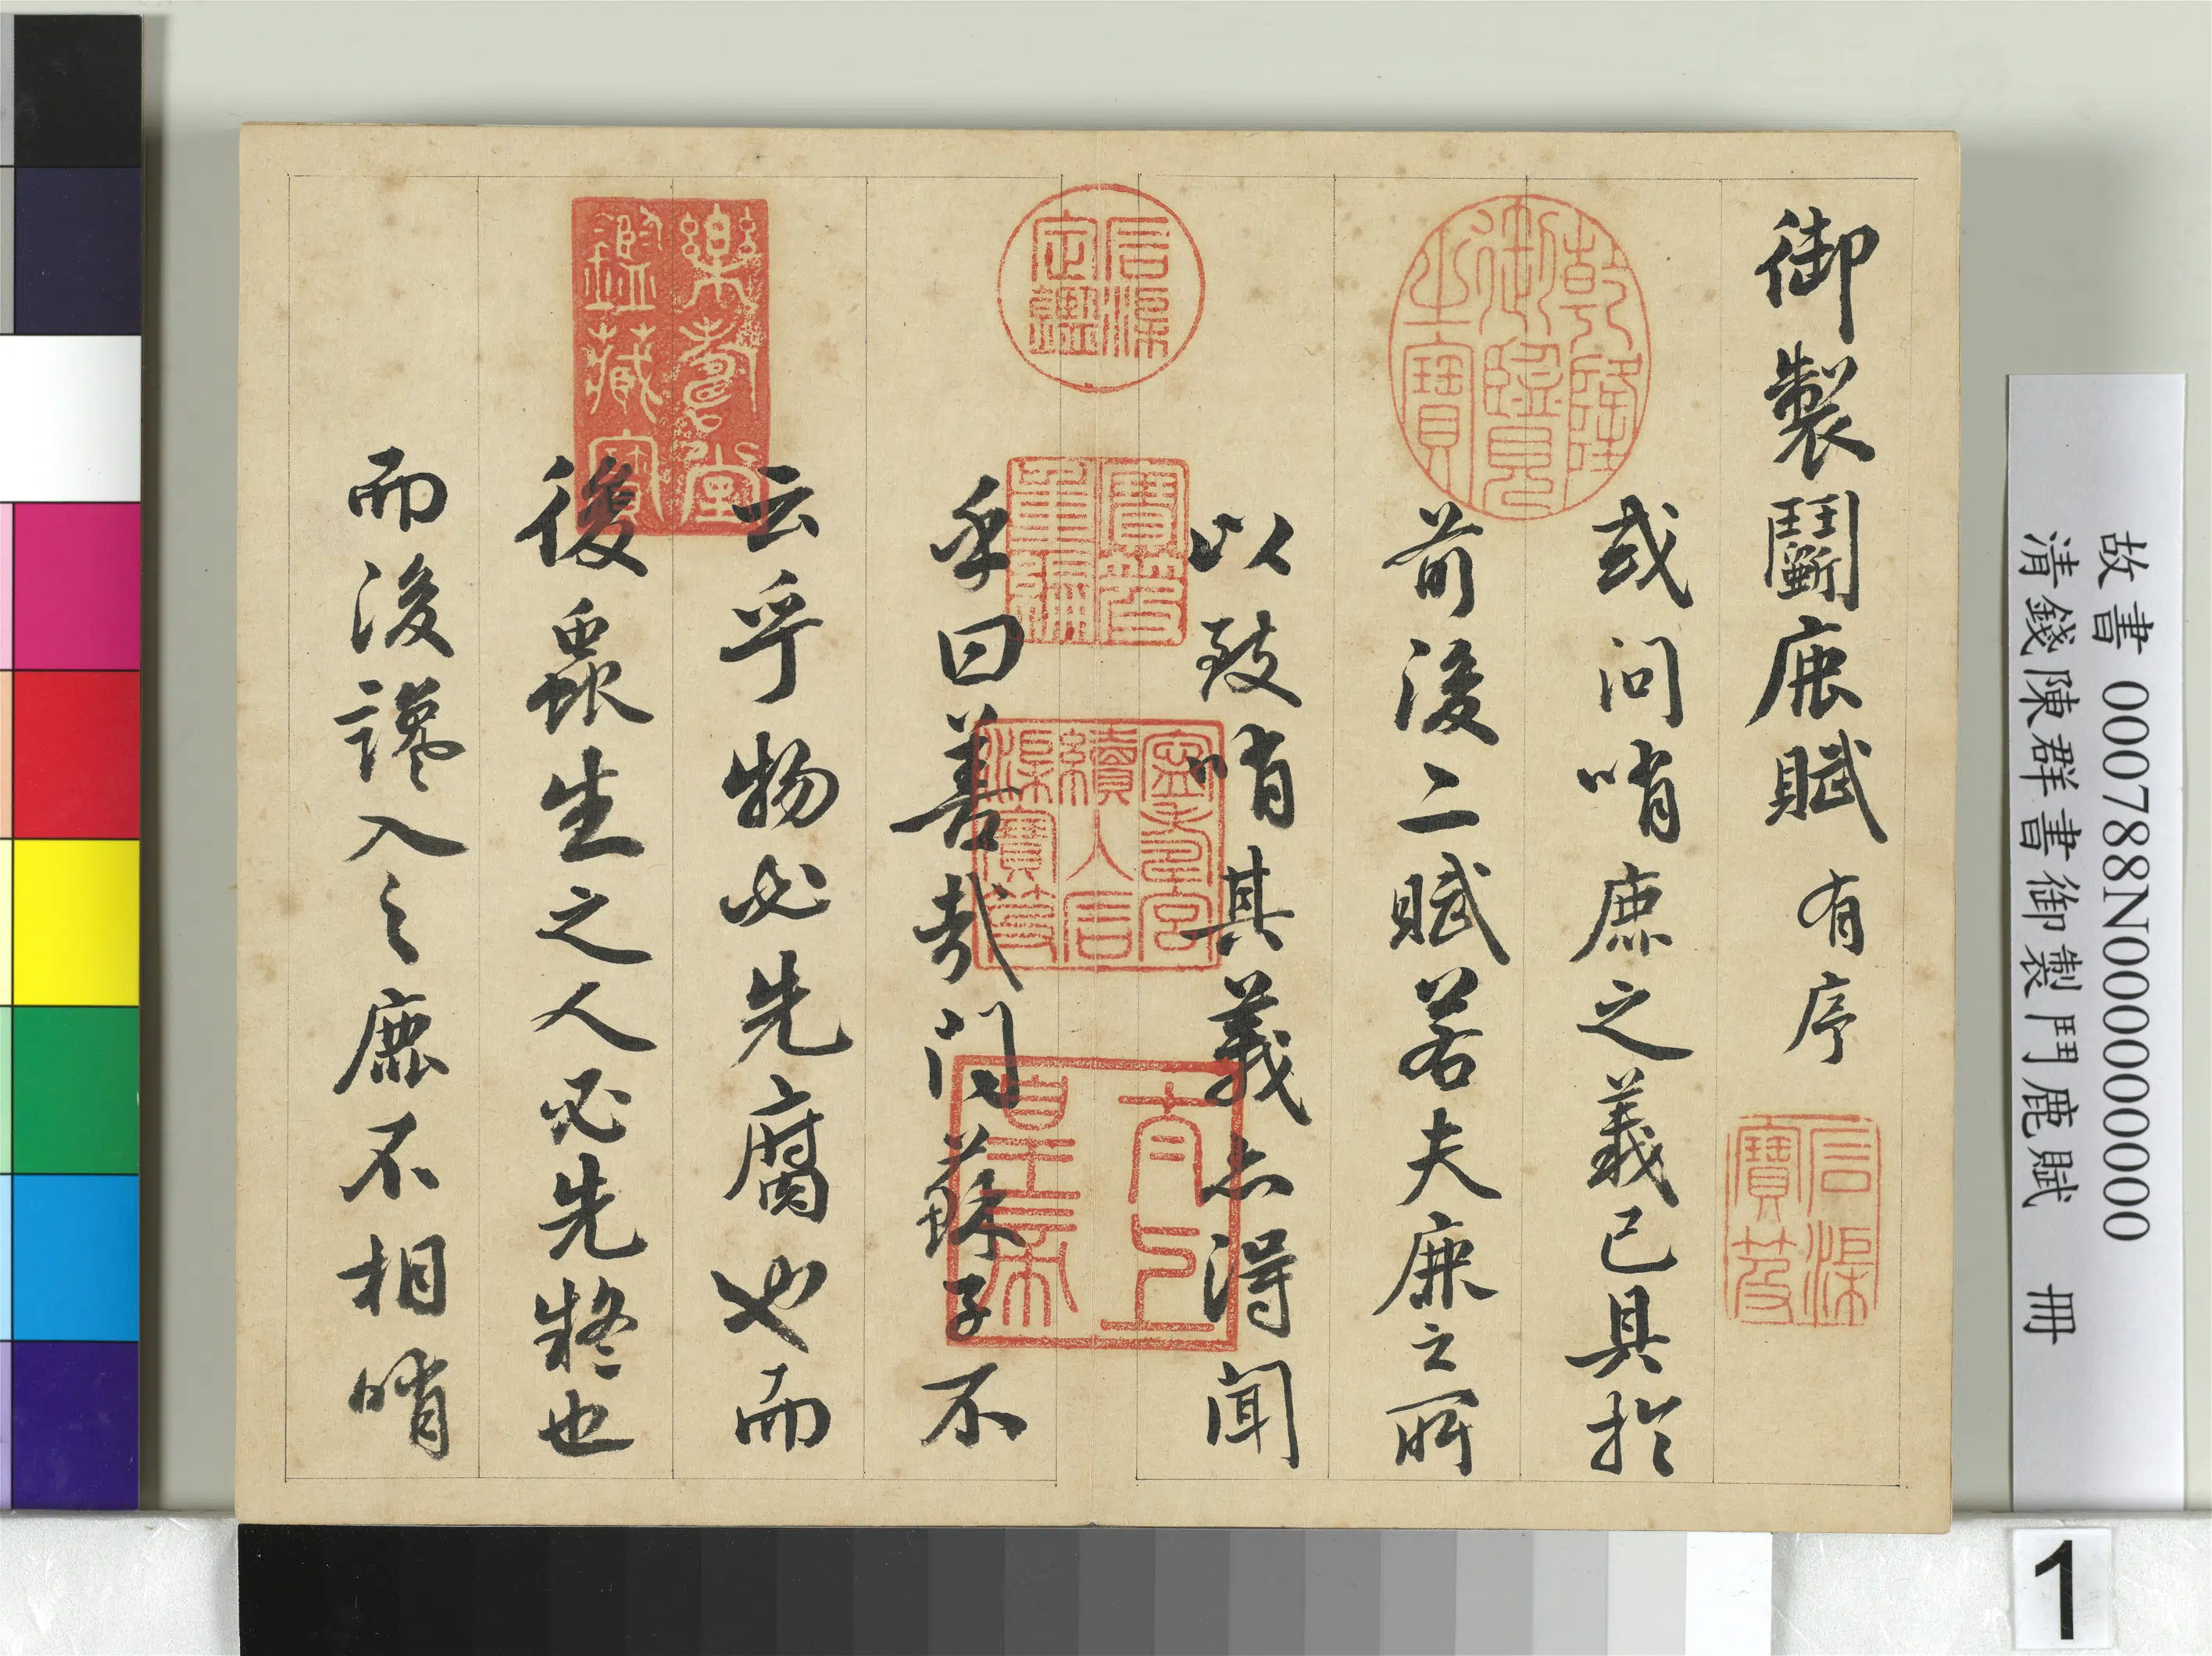 御製鬭鹿賦有序
或问哨鹿之義已具於
前後二賦若夫鹿之所
以致哨其義亦得聞
乎曰善哉问蘇子不
云乎物必先腐也而
後蟲生之人必先疑也
而後讒入之鹿不相哨
乾隆御覽之寶
石渠寶笈
石渠定鑑
寶笈重編
寧壽宮續入石渠寶笈
太上皇帝
樂壽堂鑑藏寶
故書 000788N000000000
清錢陳群書御製鬥鹿賦 冊
1